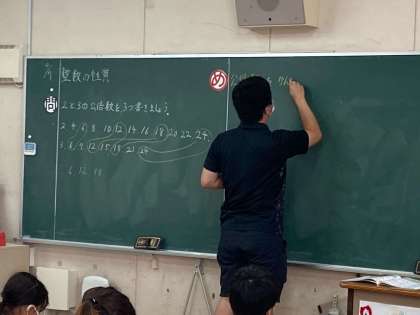 整数の性質
問 2と3の公倍数を3つ書きましょう。
2 4 6 8 10 12 14 16 18 20 22 24
3 6 9 12 15 18 21 24
6 12 18
め